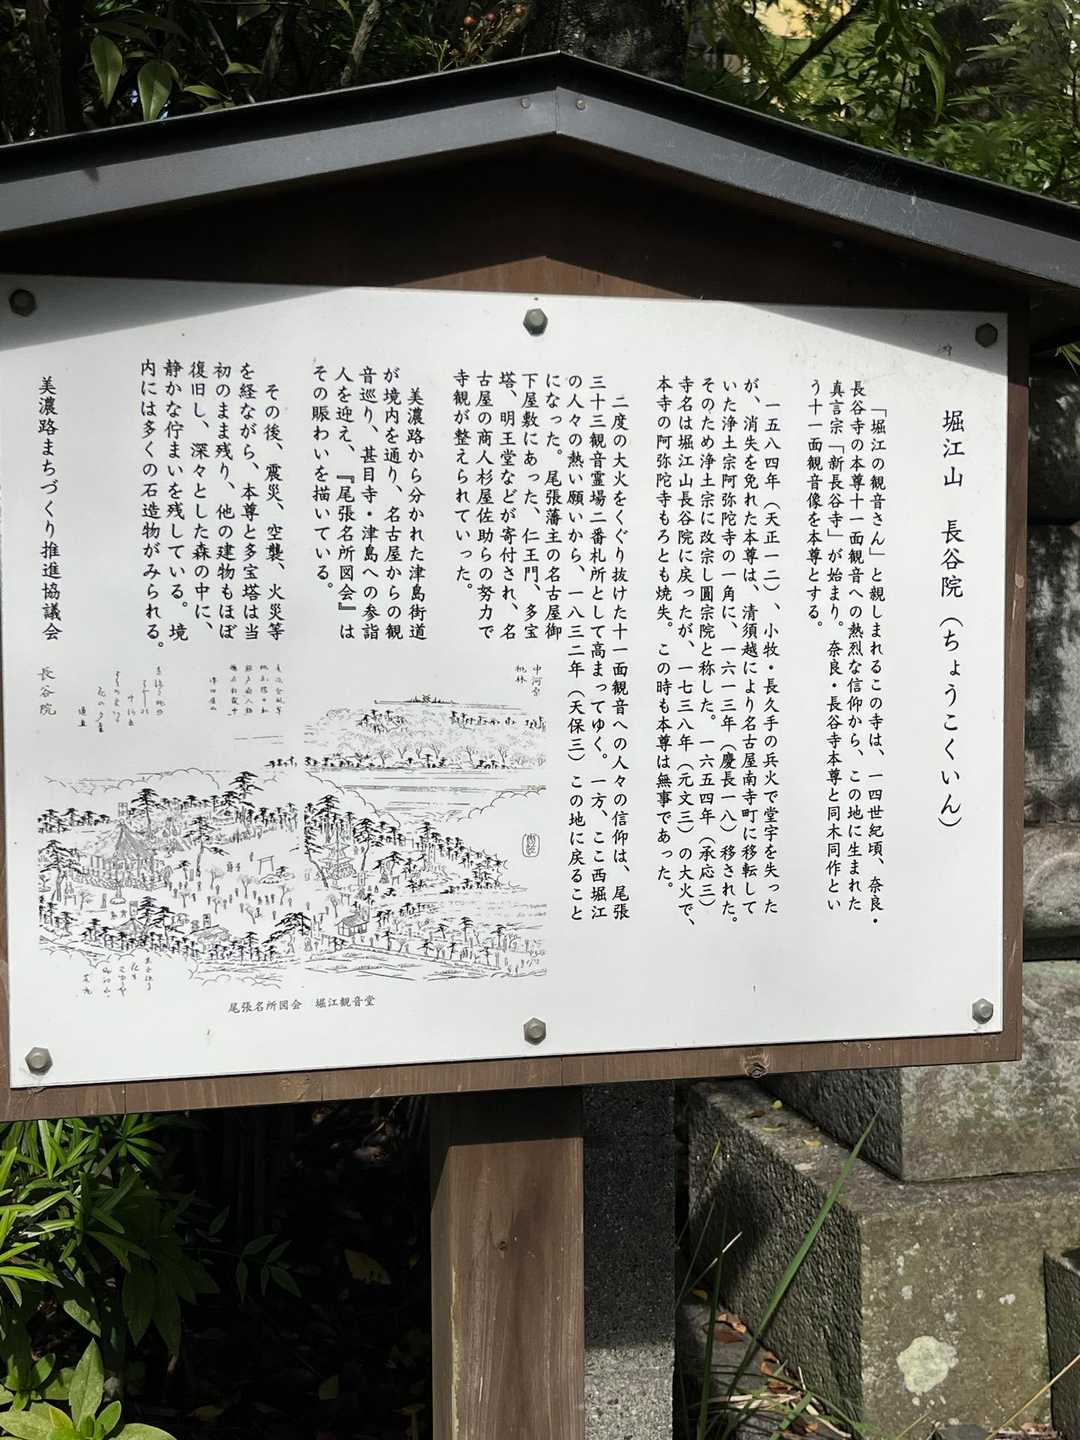 堀江山 長谷院（ちょうこくいん）
「堀江の観音さん」と親しまれるこの寺は、一四世紀頃、奈良・
長谷寺の本尊十一面観音への熱烈な信仰から、この地に生まれた
真言宗「新長谷寺」が始まり。奈良・長谷寺本尊と同木同作とい
う十一面観音像を本尊とする。
一五八四年（天正一二）、小牧・長久手の兵火で堂宇を失った
が、消失を免れた本尊は、清須越により名古屋南寺町に移転して
いた浄土宗阿弥陀寺の一角に、一六一三年（慶長一八）移された。
そのため浄土宗に改宗し圓宗院と称した。一六五四年（承応三）
寺名は堀江山長谷院に戻ったが、一七三八年（元文三）の大火で、
本寺の阿弥陀寺もろとも焼失。この時も本尊は無事であった。
二度の大火をくぐり抜けた十一面観音への人々の信仰は、尾張
三十三観音霊場二番札所として高まってゆく。一方、ここ西堀江
の人々の熱い願いから、一八三二年（天保三）この地に戻ること
になった。尾張藩主の名古屋御
下屋敷にあった、仁王門、多宝
塔、明王堂などが寄付され、名
古屋の商人杉屋佐助らの努力で
寺観が整えられていった。
美濃路から分かれた津島街道
が境内を通り、名古屋からの観
音巡り、甚目寺・津島への参詣
人を迎え、『尾張名所図会』は
その賑わいを描いている。
その後、震災、空襲、火災等
を経ながら、本尊と多宝塔は当
初のまま残り、他の建物もほぼ
復旧し、深々とした森の中に、
静かな佇まいを残している。境
内には多くの石造物がみられる。
美濃路まちづくり推進協議会
長谷院
中河原
桃林
尾張名所図会 堀江観音堂